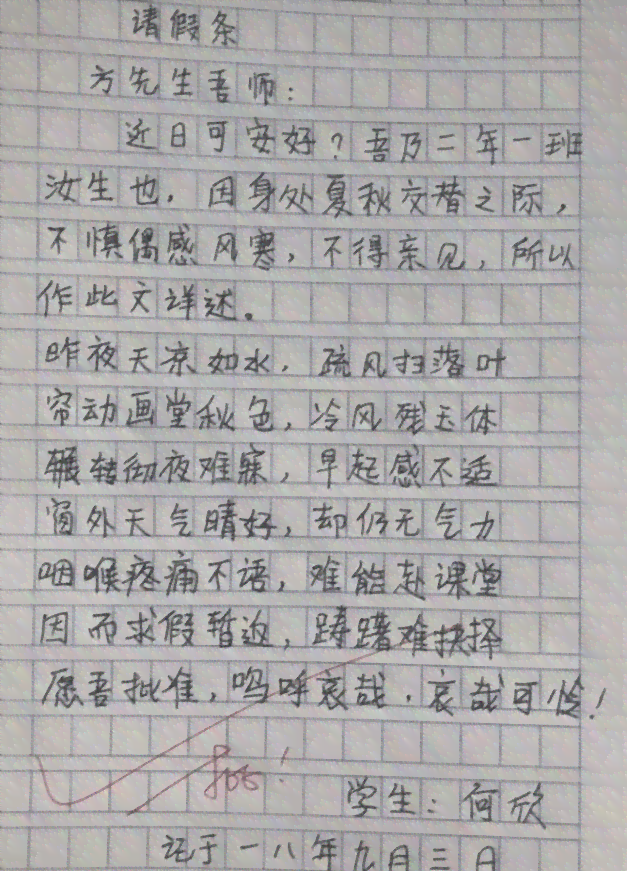 请假条
方先生吾师：
近日可安好？吾乃二年一班
汝生也，因身处夏秋交替之际，
不慎偶感风寒，不得亲见，所以
作此文详述。
昨夜天凉如水，疏风扫落叶
帘动画堂秋色，冷风残玉体
辗转彻夜难寐，早起感不适
窗外天气晴好，却仍无气力
咽喉疼痛不语，难能赴课堂
因而求假暂返，踌躇难抉择
愿吾批准，呜呼哀哉，哀哉可怜！
学生：何欣
记于一八年九月三日